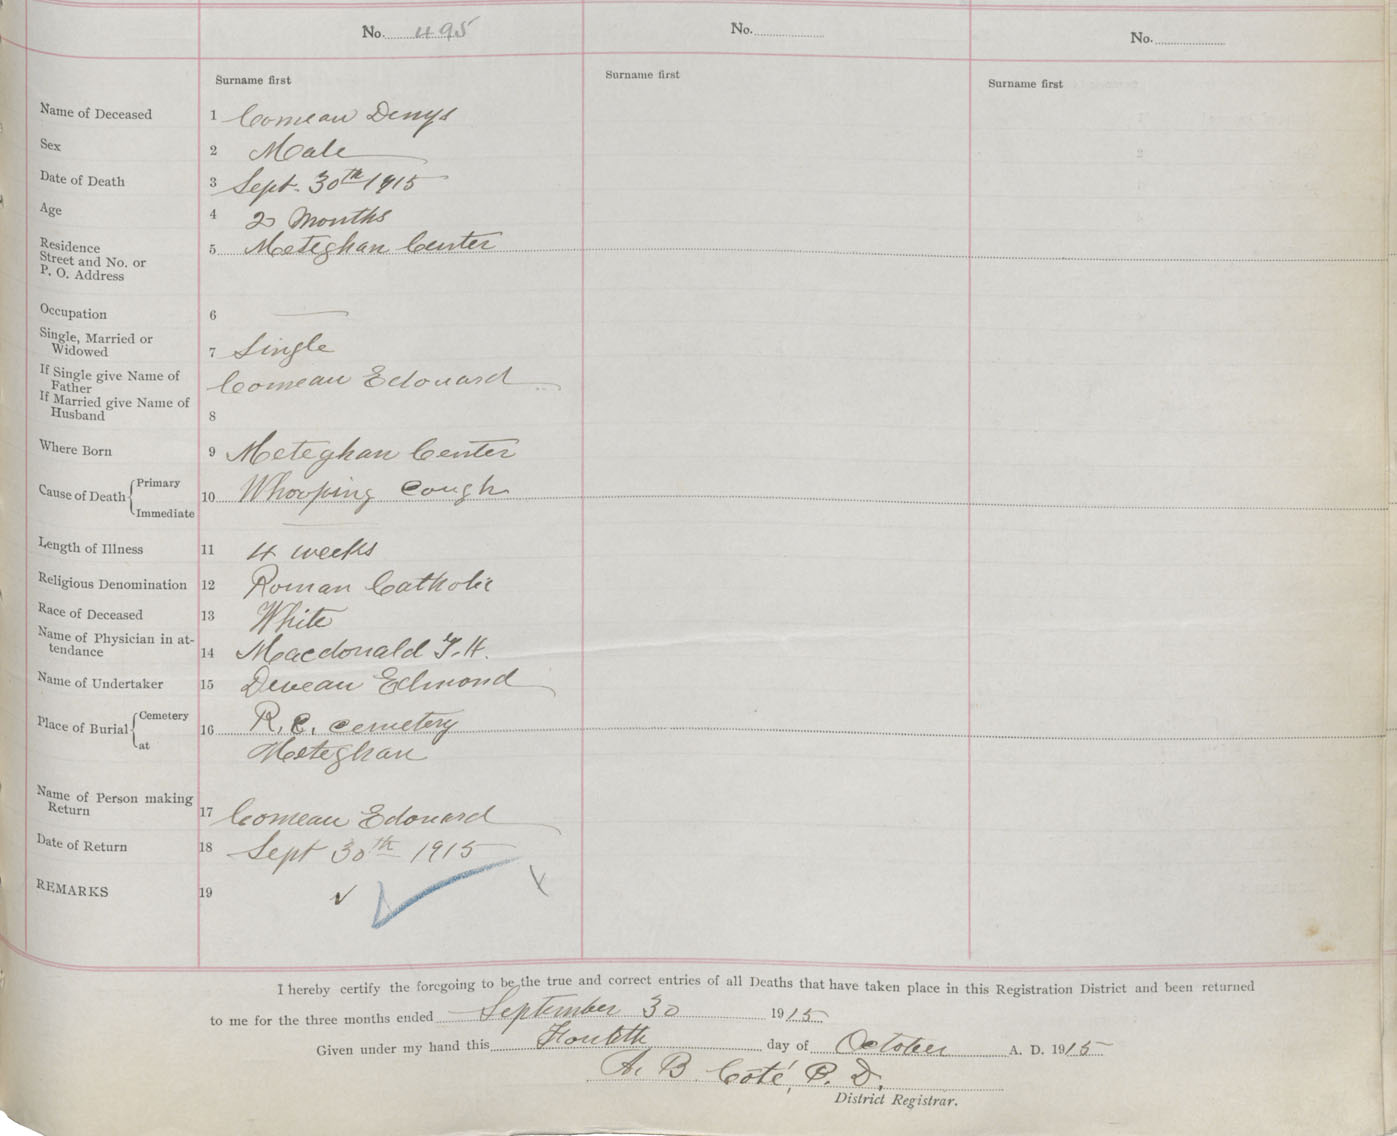 No. 495
No.
No.
Surname first
Surname first
Surname first
Name of Deceased 1 Comeau Denys
Sex 2 Male
Date of Death 3 Sept. 30th 1915
Age 4 2 Months
Residence
Street and No. or
P. O. Address
5 Meteghan Center
Occupation 6
Single, Married or
Widowed
7 Single
If Single give Name of
Father
Comeau Edouard
If Married give Name of
Husband
8
Where Born 9 Meteghan Center
Cause of Death
Primary
10 Whooping Cough
Immediate
Length of Illness 11 4 weeks
Religious Denomination 12 Roman Catholic
Race of Deceased 13 White
Name of Physician in at-
tendance
14 Macdonald T. H.
Name of Undertaker 15 Deveau Edmond
Place of Burial
Cemetery
16 R. C. Cemetery
at
Meteghan
Name of Person making
Return
17 Comeau Edouard
Date of Return 18 Sept 30th 1915
REMARKS 19
I hereby certify the foregoing to be the true and correct entries of all Deaths that have taken place in this Registration District and been returned
to me for the three months ended September 30 1915
Given under my hand this Fourth day of October A. D. 1915
A. B. Coté, P. D.
District Registrar.